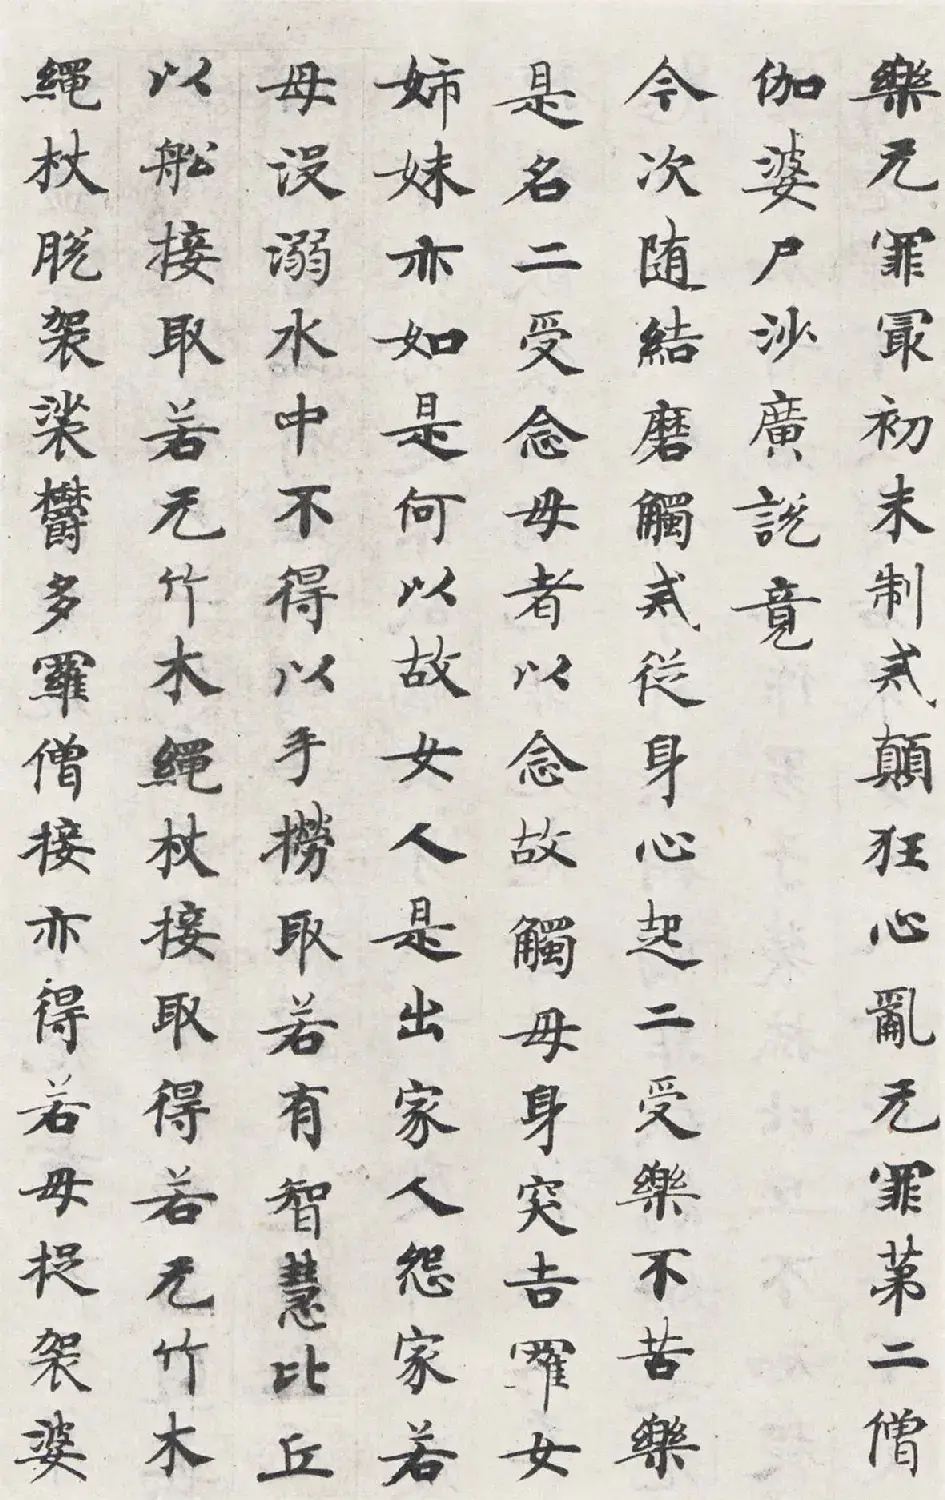 樂无罪冣初未制戒顛狂心亂无罪第二僧
伽婆尸沙廣說竟
今次随結磨觸戒從身心起二受樂不苦樂
是名二受念母者以念故觸母身突吉羅女
姉妹亦如是何以故女人是出家人怨家若
母没溺水中不得以手撈取若有智慧比丘
以舩接取若无竹木繩杖接取得若无竹木
繩杖脱袈裟欝多羅僧接亦得若母捉袈婆